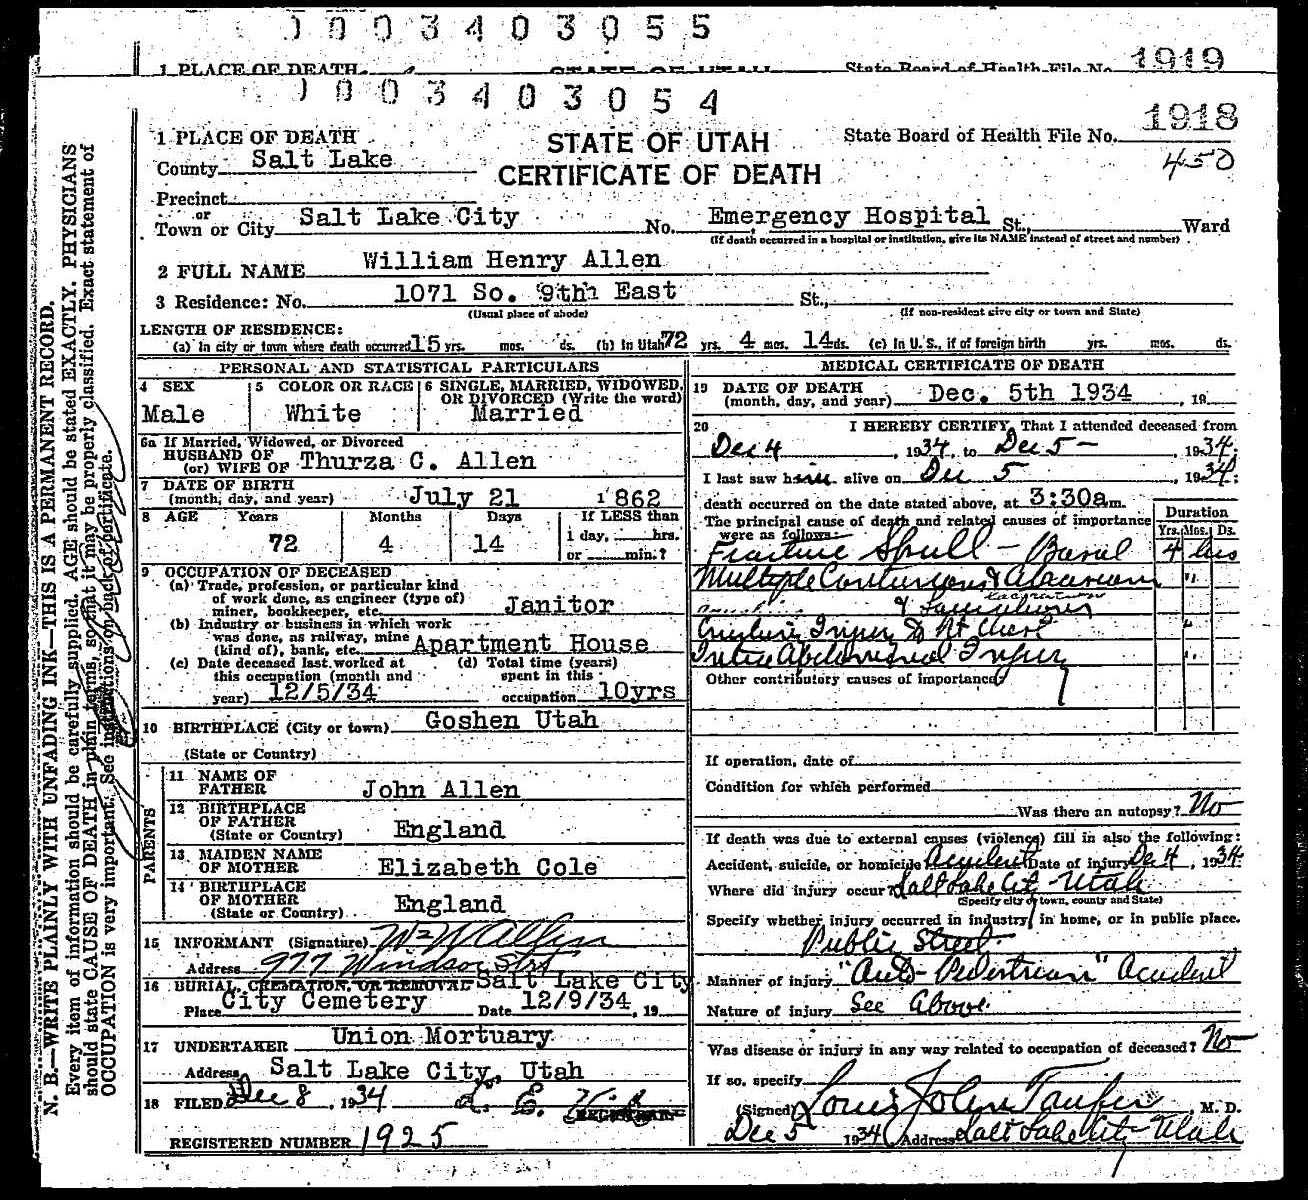 0 0 0 3 4 0 3 0 5 5
1 PLACE OF DEATH STATE OF UTAH State Board of Health File No. 1919
0 0 0 3 4 0 3 0 5 4
1 PLACE OF DEATH STATE OF UTAH State Board of Health File No. 1918
County Salt Lake CERTIFICATE OF DEATH 450
Precinct
or
Town or City Salt Lake City No. Emergency Hospital St., Ward
(If death occurred in a hospital or institution, give its NAME instead of street and number)
2 FULL NAME William Henry Allen
3 Residence: No. 1071 So. 9th East St.,
(Usual place of abode) (If non-resident give city or town and State)
LENGTH OF RESIDENCE:
(a) In city or town where death occurred 15 yrs. mos. ds. (b) In Utah 72 yrs. 4 mos. 14 ds. (c) In U. S., if of foreign birth yrs. mos. ds.
PERSONAL AND STATISTICAL PARTICULARS
4 SEX 5 COLOR OR RACE 6 SINGLE, MARRIED, WIDOWED, OR DIVORCED (Write the word)
Male White Married
6a If Married, Widowed, or Divorced
HUSBAND OF
(or) WIFE OF Thurza C. Allen
7 DATE OF BIRTH
(month, day, and year) July 21 1862
8 AGE Years Months Days If LESS than
1 day, hrs.
72 4 14 or min.?
9 OCCUPATION OF DECEASED
(a) Trade, profession, or particular kind
of work done, as engineer (type of)
miner, bookkeeper, etc. Janitor
(b) Industry or business in which work
was done, as railway, mine
(kind of), bank, etc. Apartment House
(c) Date deceased last worked at (d) Total time (years)
this occupation (month and spent in this
year) 12/5/34 occupation 10yrs
10 BIRTHPLACE (City or town) Goshen Utah
(State or Country)
PARENTS
11 NAME OF
FATHER John Allen
12 BIRTHPLACE
OF FATHER England
(State or Country)
13 MAIDEN NAME
OF MOTHER Elizabeth Cole
14 BIRTHPLACE
OF MOTHER England
(State or Country)
15 INFORMANT (Signature) Wm W Allen
Address 977 Windsor Strt
16 BURIAL, CREMATION, OR REMOVAL Salt Lake City
Place City Cemetery Date 12/9/34, 19
17 UNDERTAKER Union Mortuary
Address Salt Lake City, Utah
18 FILED Dec 8, 1934
REGISTERED NUMBER 1925
MEDICAL CERTIFICATE OF DEATH
19 DATE OF DEATH
(month, day, and year) Dec. 5th 1934, 19
20 I HEREBY CERTIFY, That I attended deceased from
Dec 4, 1934, to Dec 5-, 1934.
I last saw him alive on Dec 5, 1934:
death occurred on the date stated above, at 3:30a m.
The principal cause of death and related causes of importance
were as follows:
Duration
Yrs. Mos. Ds.
Fracture Skull - Basal 4 hrs
Multiple Contusions & Abrasions "
& Lacerations
Crushing Injury to Rt Chest "
Intra Abdominal Injury "
Other contributory causes of importance:
If operation, date of
Condition for which performed
Was there an autopsy? No
If death was due to external causes (violence) fill in also the following:
Accident, suicide, or homicide Accident Date of injury Dec 4, 1934
Where did injury occur? Salt Lake City - Utah
(Specify city or town, county and State)
Specify whether injury occurred in industry, in home, or in public place.
Public Street
Manner of injury "Auto-Pedestrian" Accident
Nature of injury See Above
Was disease or injury in any way related to occupation of deceased? No
If so, specify
(Signed) Louis John Taufer M. D.
Dec 5 1934 Address Salt Lake City - Utah
N. B.—WRITE PLAINLY WITH UNFADING INK—THIS IS A PERMANENT RECORD.
Every item of information should be carefully supplied. AGE should be stated EXACTLY. PHYSICIANS
should state CAUSE OF DEATH in plain terms, so that it may be properly classified. Exact statement of
OCCUPATION is very important. See instructions on back of certificate.